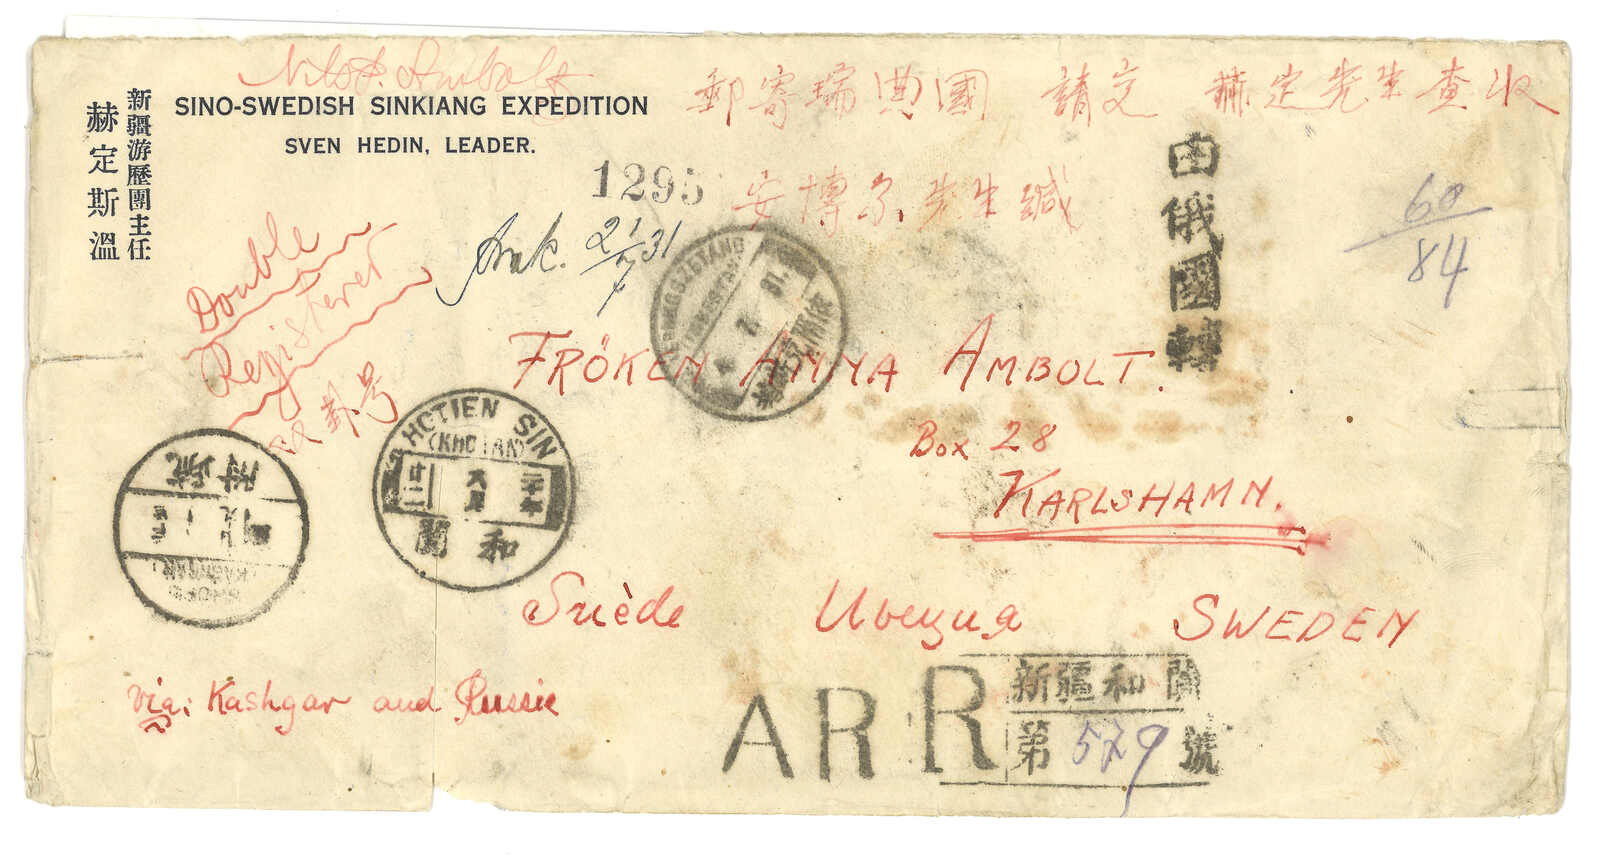 Nils P. Ambolt
新疆游歷團主任
赫定斯溫
SINO-SWEDISH SINKIANG EXPEDITION
SVEN HEDIN, LEADER.
郵寄瑞典國 請交 赫定先生查收
安博尔先生缄
1295
Ank. 2/7 31
由俄國轉
60
84
Double
Registered
双挂号
FRÖKEN ANNA AMBOLT.
Box 28
KARLSHAMN.
HOTIEN SIN
(KHOTAN)
和闐
疏附
(KASHGAR)
Suède Швеция SWEDEN
via: Kashgar and Russie
AR R
新疆和闐
第579號